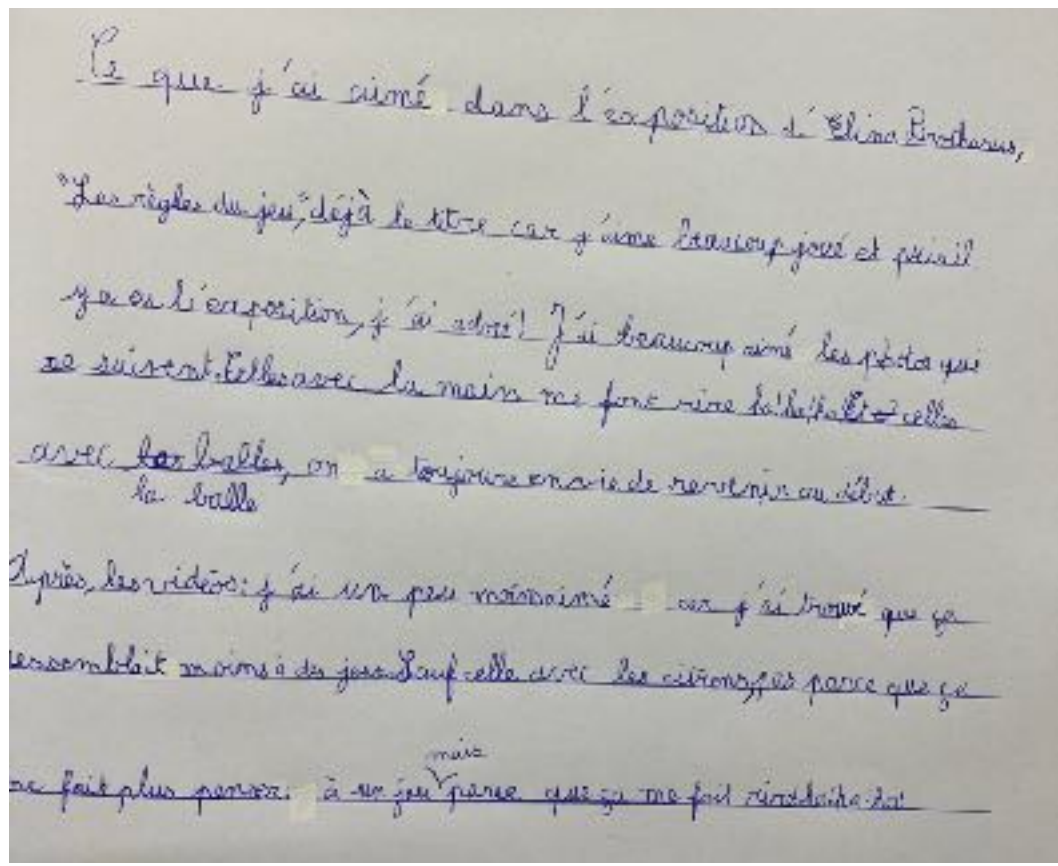 Ce que j'ai aimé dans l'exposition d'Elina Brotherus,
"Les règles du jeu", déjà le titre car j'aime beaucoup joué et puis il
y a eu l'exposition, j'ai adoré! J'ai beaucoup aimé les photos qui
se suivent. Celles avec la main me font rire ha! ha! ha! Et celles
avec les balles, on a toujours envie de revenir au début.
la balle
Après, les vidéos: j'ai un peu moins aimé car j'ai trouvé que ça
ressemblait moins à des jeux. Sauf celle avec les citrons, pas parce que ça
me fait plus penser à un jeu mais parce que ça me fait rire ha ha ha!